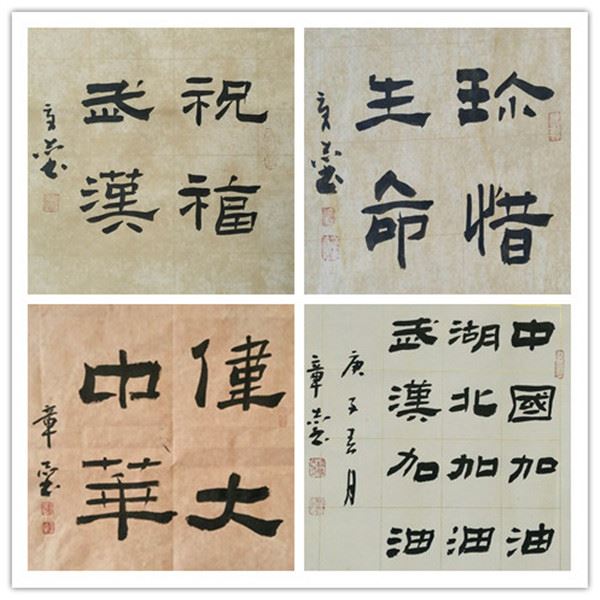 祝福
武漢
章
珎惜
生命
章
偉大
中華
章
中國加油
湖北加油
武漢加油
庚子春月
章